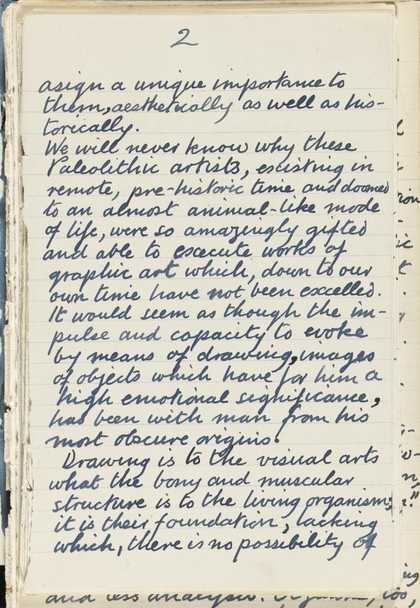 2
asign a unique importance to
them, aesthetically as well as his-
torically.
We will never know why these
Paleolithic artists, existing in
remote, pre-historic time and doomed
to an almost animal-like mode
of life, were so amazingly gifted
and able to execute works of
graphic art which, down to our
own time have not been excelled.
It would seem as though the im-
pulse and capacity to evoke
by means of drawing, images
of objects which have for him a
high emotional significance,
has been with man from his
most obscure origins.
Drawing is to the visual arts
what the bony and muscular
structure is to the living organism;
it is their foundation, lacking
which, there is no possibility of
and less analysis.